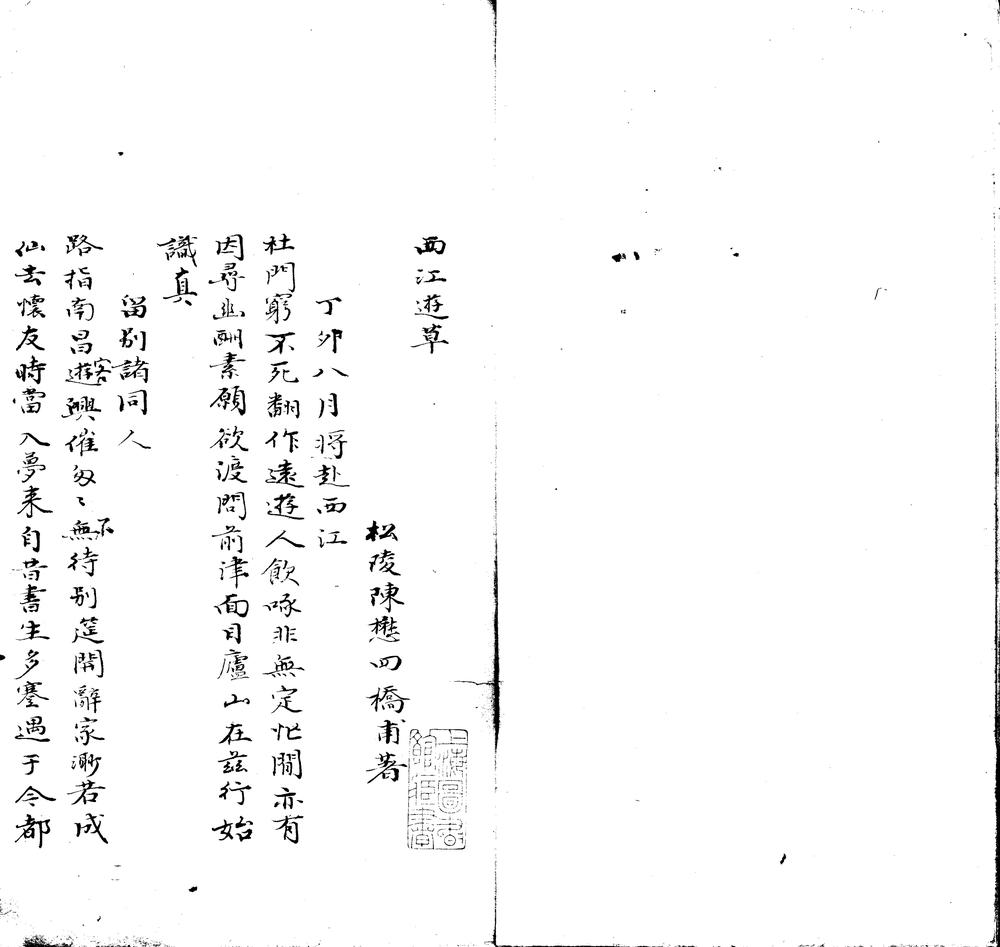 西江遊草
松陵陳懋四橋甫著
丁卯八月將赴西江
杜門窮不死翻作遠遊人飲啄非無定忙閒亦有
因尋幽酬素願欲渡問前津面目廬山在茲行始
識真
留別諸同人
路指南昌遊客興催匆〻無不待別筵開辭家渺若成
仙去懷友時當入夢来自昔書生多蹇遇于今都
上海圖書館藏書